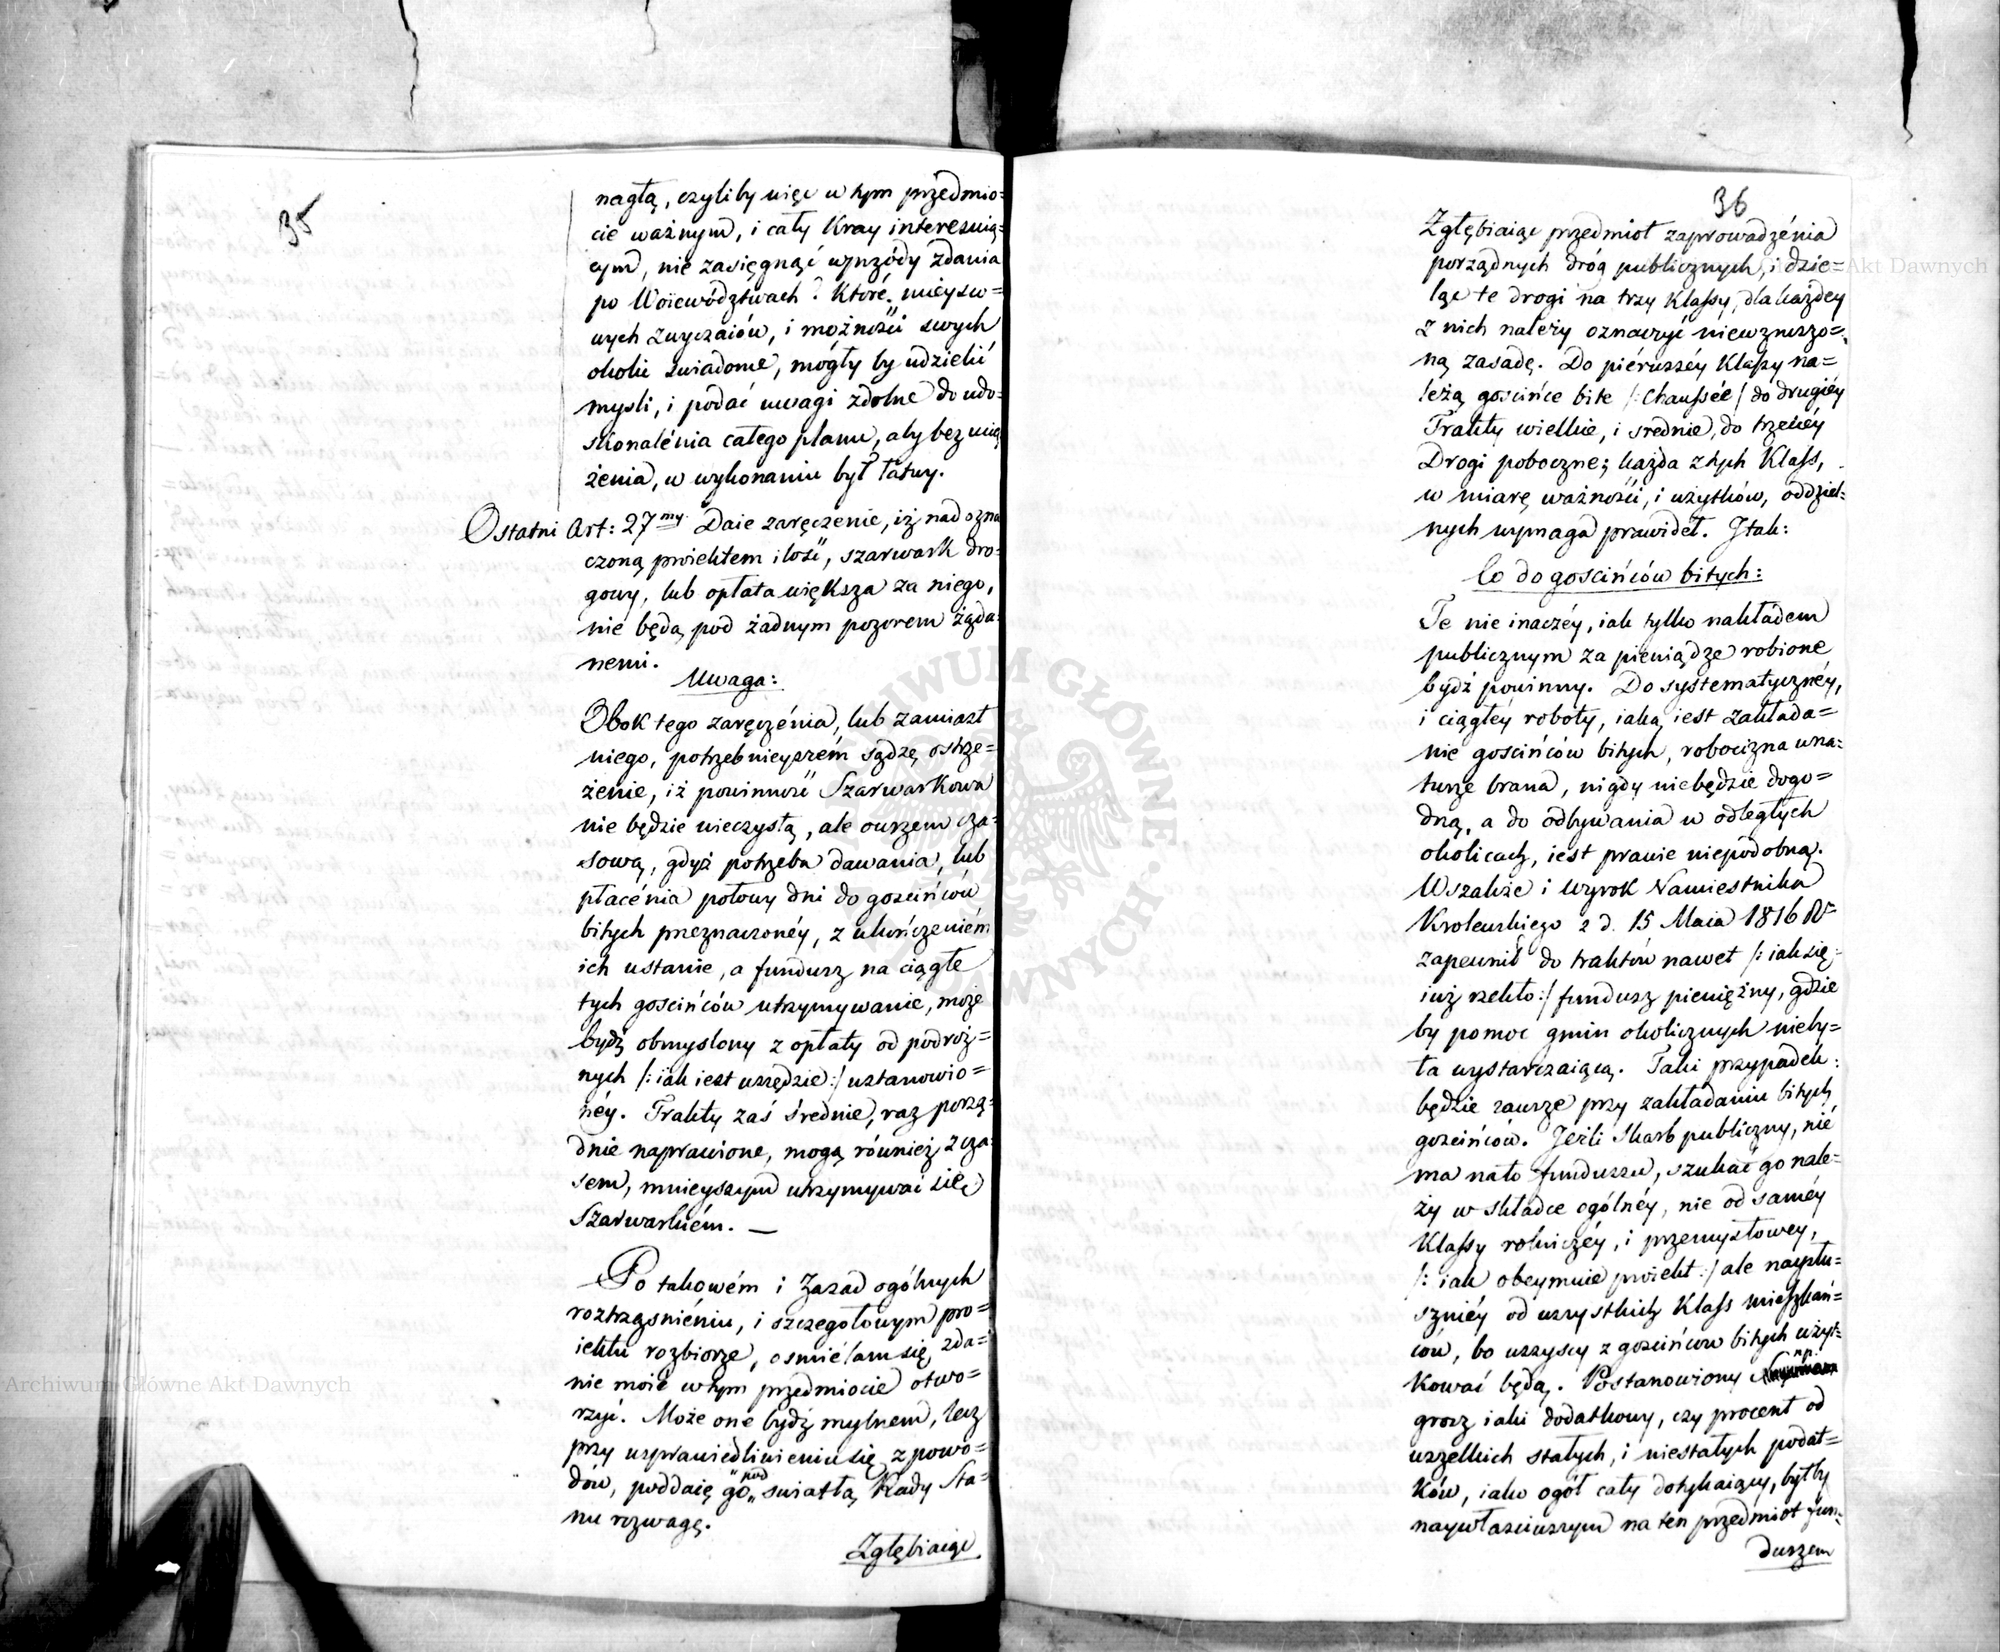 35
nagłą, czyliby więc w tym przedmio=
cie ważnym, i cały Kray interesuią=
cym, nie zasięgnąć wprzódy zdania
po Woiewództwach? Które, mieysco=
wych zwyczaiów, i możności swych
okolic świadome, mógły by udzielić
mysli, i podać uwagi zdolne do udo=
skonalénia całego planu, aby bez ucią
żenia, w wykonaniu był łatwy.
Ostatni Art: 27my Daie zaręczenie, iż nad ozna
czoną proiektem ilość, szarwark dro=
gowy, lub opłata większa za niego,
nie będą pod żadnym pozorem żąda=
nemi.
Uwaga:
Obok tego zaręczénia, lub zamiast
niego, potrzebnieyszém sądzę ostrze=
żenie, iż powinność Szarwarkowa
nie będzie wieczystą, ale owszem cza=
sową, gdyż potrzeba dawania, lub
płacénia połowy dni do gościńców
bitych przeznaczonéy, z ukończeniém
ich ustanie, a fundusz na ciągłe
tych gościńców utrzymywanie, może
bydź obmyslony z opłaty od podróż=
nych /: iak iest wszędzie :/ ustanowio=
néy. Trakty zaś średnie, raz porzą=
dnie naprawione, mogą również z cza=
sem, mnieyszym utrzymywać się
Szarwarkiém. —
Po takowém i Zasad ogólnych
roztrząsnieniu, i szczegółowym pro=
iektu rozbiorze, osmiélam się zda=
nie moie w tym przedmiocie otwo=
rzyć. Może one bydź mylnem, lecz
przy usprawiedliwieniu się z powo=
dów, poddaię go „pod„ swiatłą Rady Sta=
nu rozwagę.
Zgłębiaiąc
36
Zgłębiaiąc przedmiot zaprowadzénia
porządnych dróg publicznych, i dzie=
ląc te drogi na trzy Klassy, dla każdey
z nich należy oznaczyć niewzruszo=
ną zasadę. Do piérwszéy Klassy na=
leżą gościńce bite /: Chaussée / do drugiéy
Trakty wielkie, i srednie, do trzeciéy
Drogi poboczne; każda z tych Klass,
w miarę ważności, i użytków, oddziel=
nych wymaga prawideł. I tak:
Co do gościńców bitych:
Te nie inaczéy, iak tylko nakładem
publicznym za pieniądze robione
bydź powinny. Do systematycznéy,
i ciągłéy roboty, iaką iest zakłada=
nie gościńców bitych, robocizna w na=
turze brana, nigdy nie będzie dogo=
dną, a do odbywania w odległych
okolicach, iest prawie niepodobną.
Wszakże i Wyrok Namiestnika
Krolewskiego z d. 15 Maia 1816 R.
zapewnił do traktów nawet /: iak się
iuż rzekło :/ fundusz pieniężny, gdzie
by pomoc gmin okolicznych nieby=
ła wystarczaiącą. Taki przypadek
będzie zawsze przy zakładaniu bitych
gościńców. Jeżli Skarb publiczny, nié
ma na to funduszu, szukać go nale=
ży w składce ogólnéy, nie od saméy
Klassy rolniczéy, i przemysłowey,
/: iak obeymuie proiekt :/ ale naysłu=
szniéy od wszystkich Klass mieszkań=
ców, bo wszyscy z gościńców bitych użyt=
kować będą. Postanowiony np.
grosz iaki dodatkowy, czy procent od
wszelkich stałych, i niestałych podat=
ków, iako ogół cały dotykaiący, byłby
naywłaściwszym na ten przedmiot fun=
duszem
Archiwum Główne Akt Dawnych